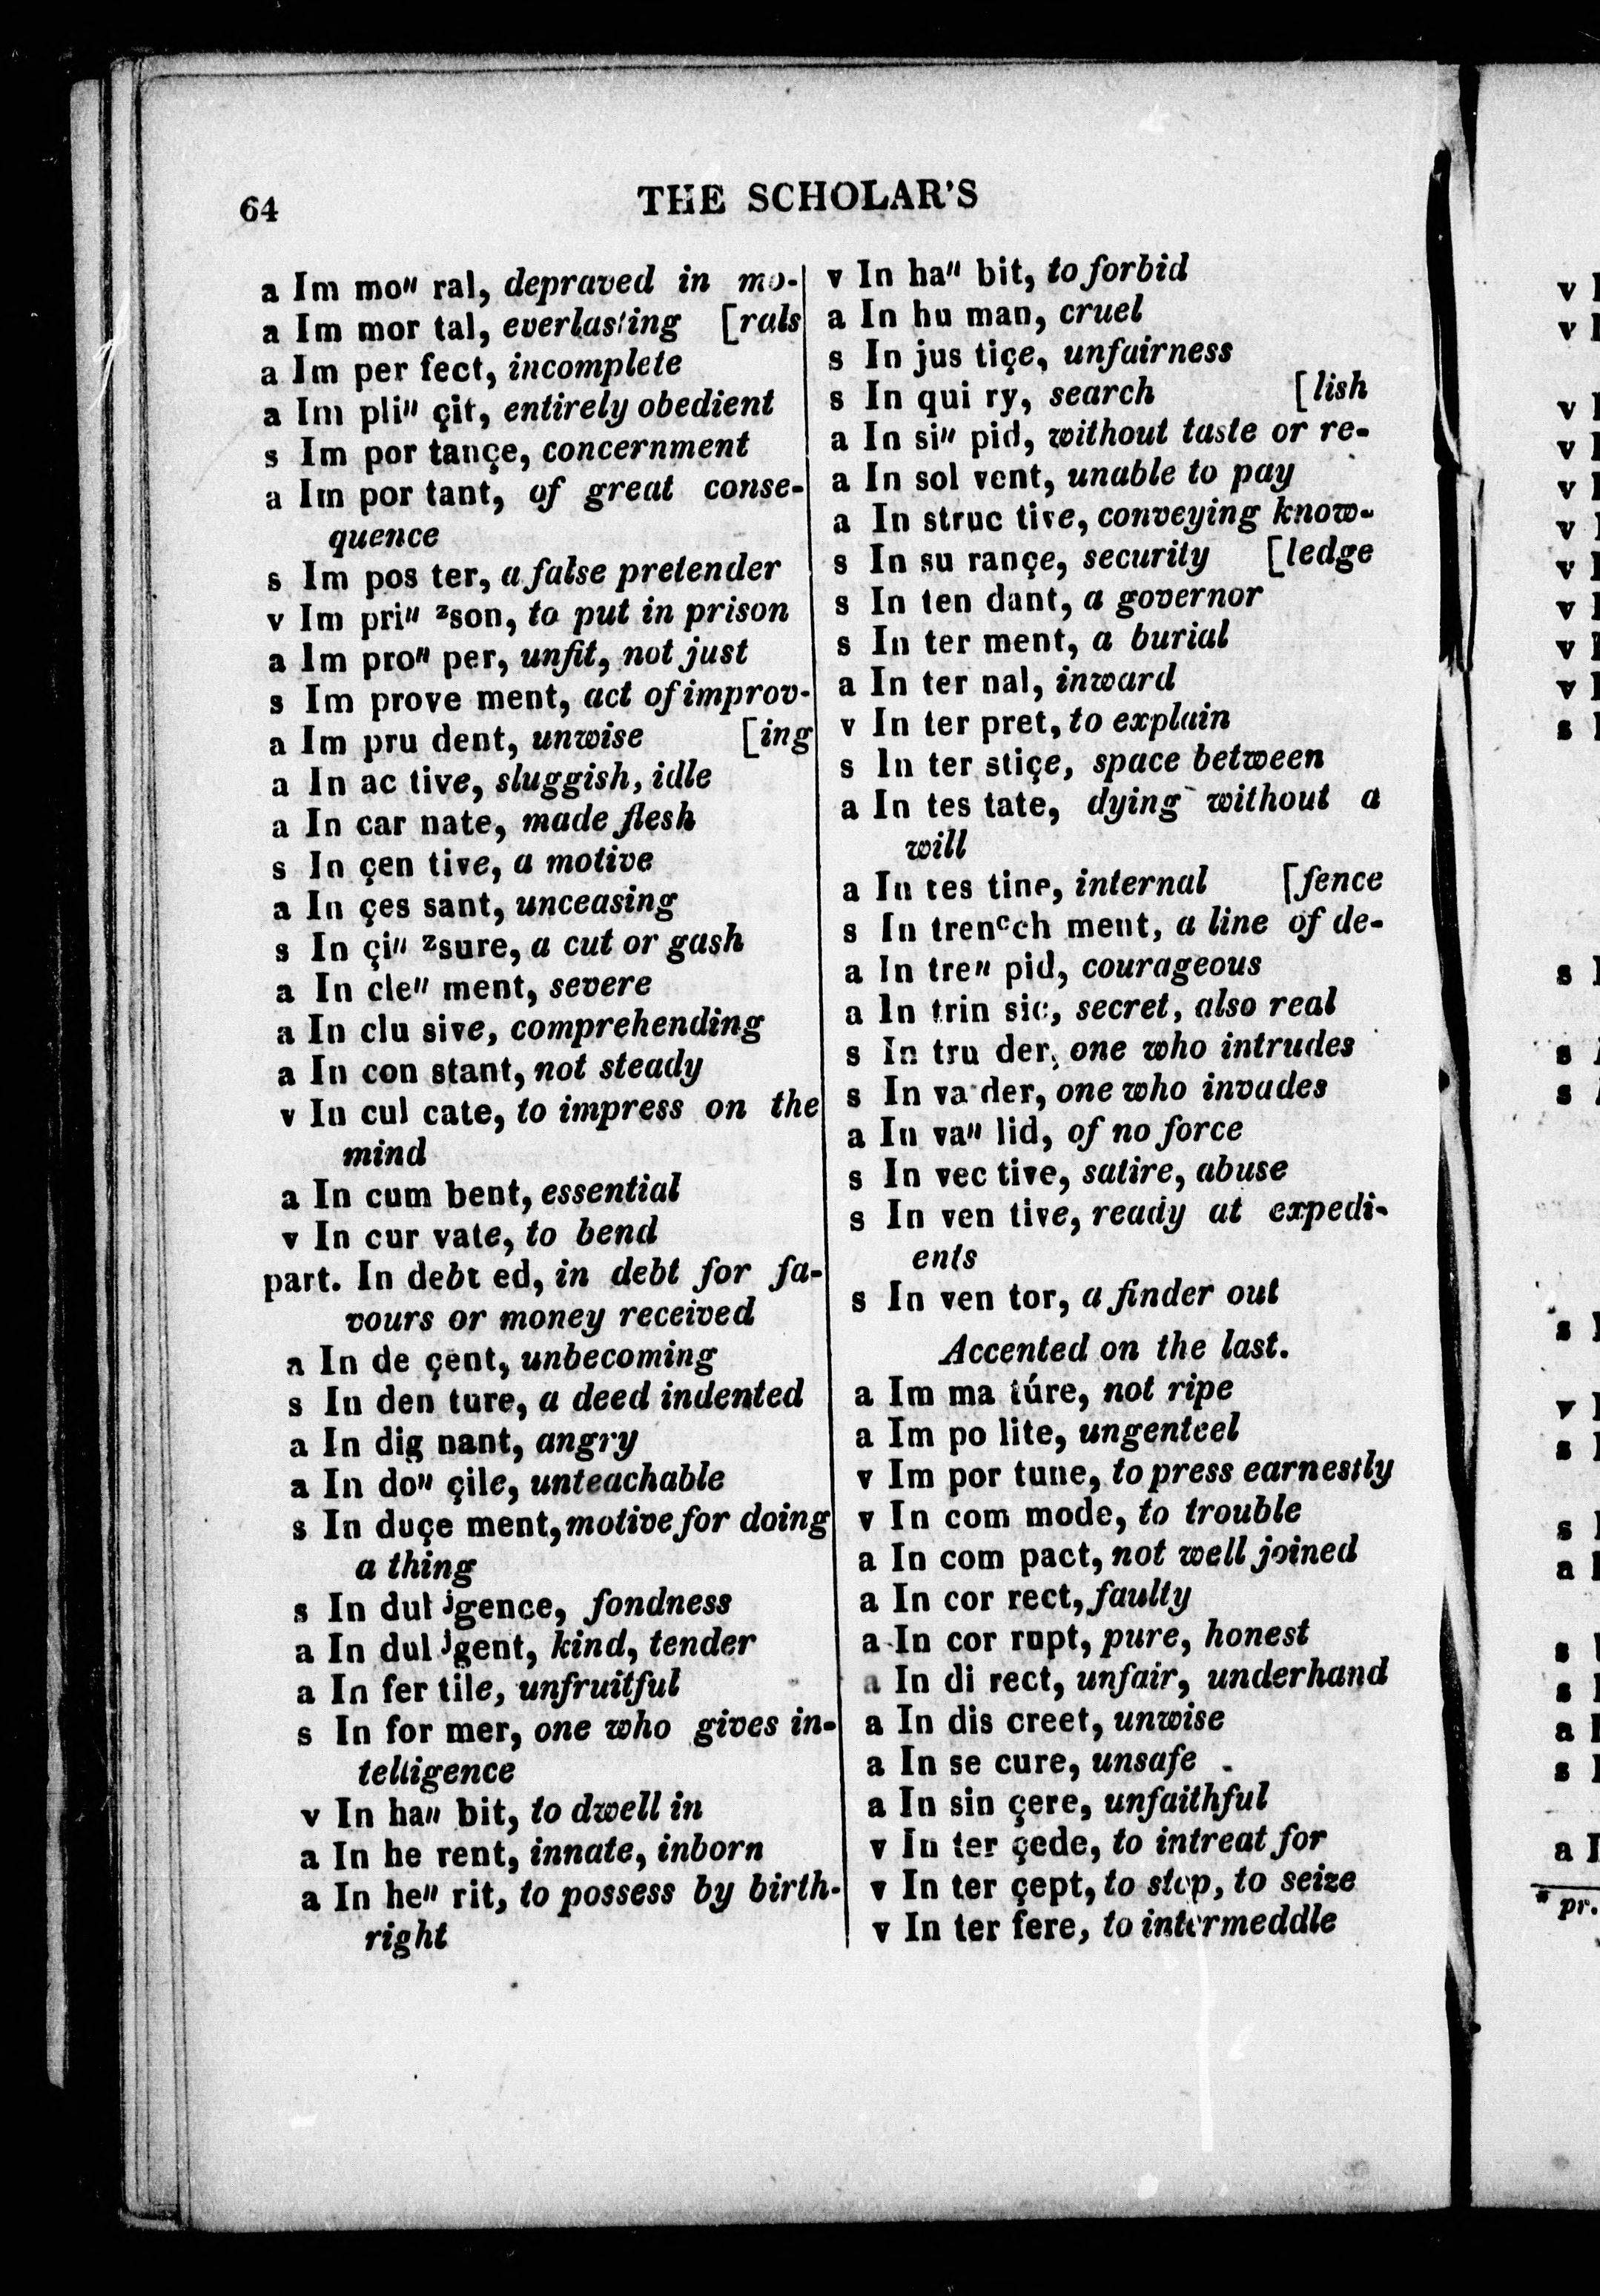 64
THE SCHOLAR'S
a Im mo" ral, depraved in mo-
a Im mor tal, everlasting [rals
a Im per fect, incomplete
a Im pli" çit, entirely obedient
s Im por tançe, concernment
a Im por tant, of great conse-
quence
s Im pos ter, a false pretender
v Im pri" ᶻson, to put in prison
a Im pro" per, unfit, not just
s Im prove ment, act of improv-
a Im pru dent, unwise [ing
a In ac tive, sluggish, idle
a In car nate, made flesh
s In çen tive, a motive
a In çes sant, unceasing
s In çi" ᶻsure, a cut or gash
a In cle" ment, severe
a In clu sive, comprehending
a In con stant, not steady
v In cul cate, to impress on the
mind
a In cum bent, essential
v In cur vate, to bend
part. In debt ed, in debt for fa-
vours or money received
a In de çent, unbecoming
s In den ture, a deed indented
a In dig nant, angry
a In do" çile, unteachable
s In duçe ment, motive for doing
a thing
s In dul ʲgence, fondness
a In dul ʲgent, kind, tender
a In fer tile, unfruitful
s In for mer, one who gives in-
telligence
v In ha" bit, to dwell in
a In he rent, innate, inborn
a In he" rit, to possess by birth-
right
v In ha" bit, to forbid
a In hu man, cruel
s In jus tiçe, unfairness
s In qui ry, search [lish
a In si" pid, without taste or re-
a In sol vent, unable to pay
a In struc tive, conveying know-
s In su rançe, security [ledge
s In ten dant, a governor
s In ter ment, a burial
a In ter nal, inward
v In ter pret, to explain
s In ter stiçe, space between
a In tes tate, dying without a
will
a In tes tine, internal [fence
s In trenᶜch ment, a line of de-
a In tre" pid, courageous
a In trin sic, secret, also real
s In tru der, one who intrudes
s In va der, one who invades
a In va" lid, of no force
s In vec tive, satire, abuse
s In ven tive, ready at expedi-
ents
s In ven tor, a finder out
Accented on the last.
a Im ma túre, not ripe
a Im po lite, ungenteel
v Im por tune, to press earnestly
v In com mode, to trouble
a In com pact, not well joined
a In cor rect, faulty
a In cor rupt, pure, honest
a In di rect, unfair, underhand
a In dis creet, unwise
a In se cure, unsafe
a In sin çere, unfaithful
v In ter çede, to intreat for
v In ter çept, to stop, to seize
v In ter fere, to intermeddle